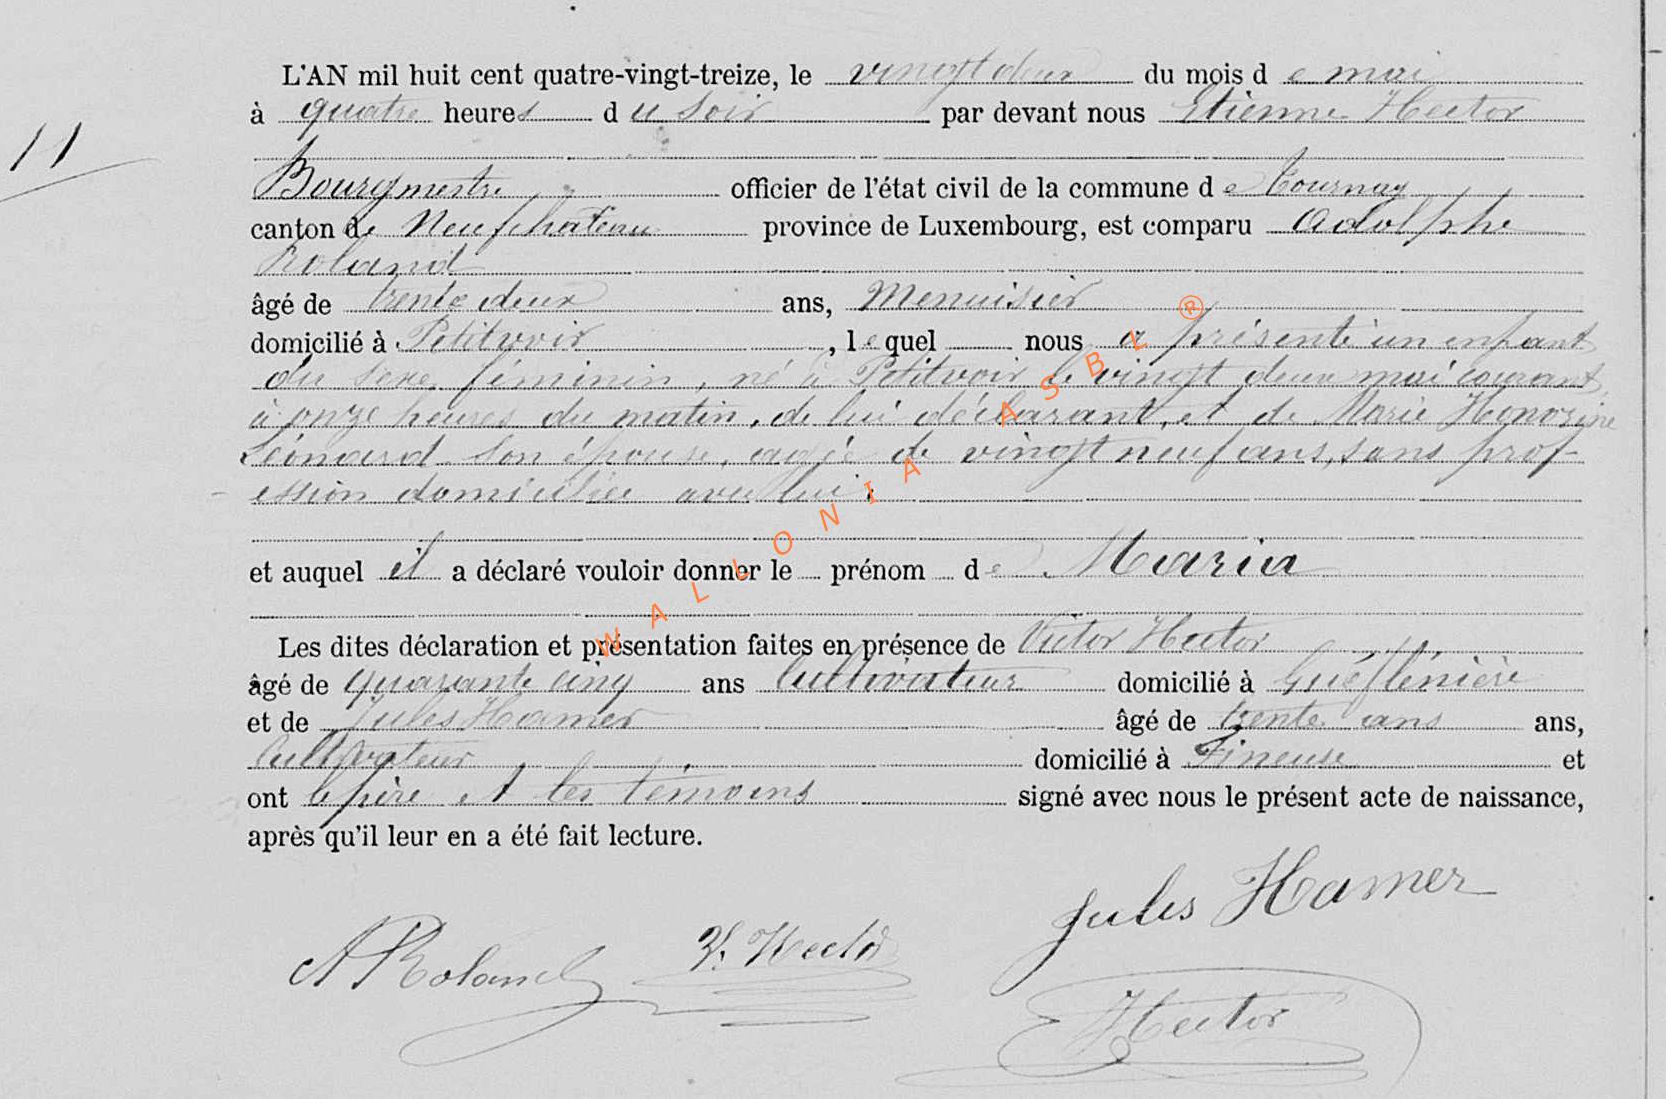 L'AN mil huit cent quatre-vingt-treize, le vingt deux du mois de mai
11
à quatre heures du soir par devant nous Etienne Hector
Bourgmestre officier de l'état civil de la commune de Tournay
canton de Neufchâteau province de Luxembourg, est comparu Adolphe
Roland
âgé de trente deux ans, Menuisier
domicilié à Petitvoir, lequel nous a présenté un enfant
du sexe féminin, né à Petitvoir le vingt deux mai courant,
à onze heures du matin, de lui déclarant, et de Marie Honorine
Léonard son épouse, agée de vingt neuf ans, sans prof-
ession domiciliée avec lui;
et auquel il a déclaré vouloir donner le prénom de Maria
Les dites déclaration et présentation faites en présence de Victor Hector
âgé de quarante cinq ans Cultivateur domicilié à
et de Jules Hamer âgé de trente ans ans,
Cultivateur domicilié à Fineuse et
ont le père et les témoins signé avec nous le présent acte de naissance,
après qu'il leur en a été fait lecture.
Jules Hamer
A Roland V. Hector
Hector
WALLONIA ASBL ®